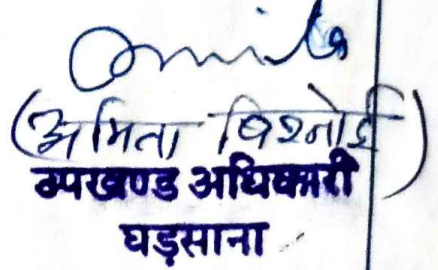 Amita
(अमिता बिश्नोई)
उपखण्ड अधिकारी
घड़साना